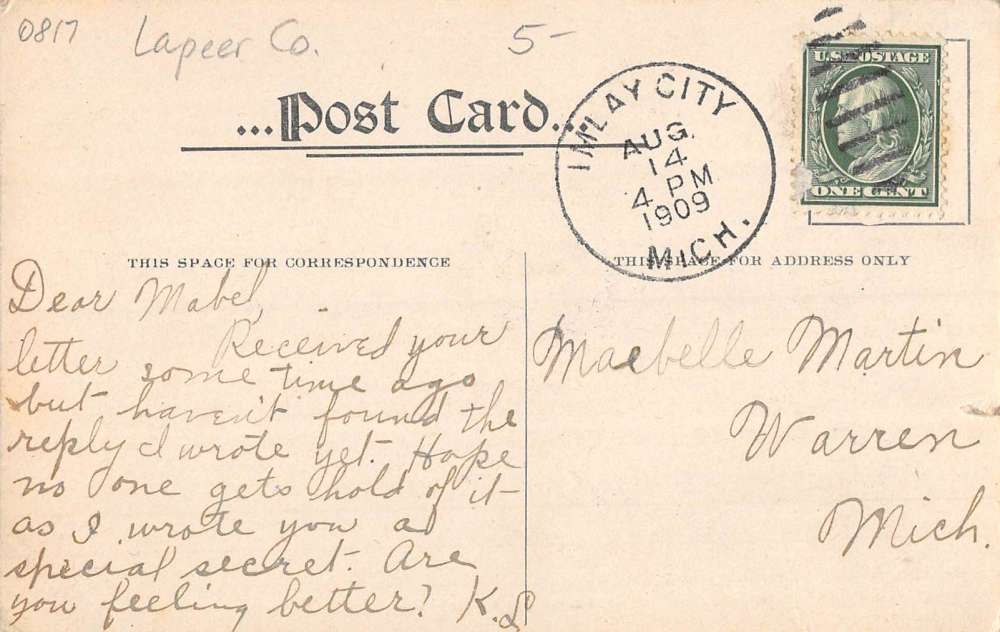 0817 Lapeer Co. 5-
...Post Card...
IMLAY CITY
AUG.
14
4 PM
1909
MICH.
U.S. POSTAGE
ONE CENT
THIS SPACE FOR CORRESPONDENCE
THIS SPACE FOR ADDRESS ONLY
Dear Mabel,
Received your
letter some time ago
but haven't found the
reply I wrote yet. Hope
no one gets hold of it
as I wrote you a
special secret. Are
you feeling better? K.S
Maebelle Martin
Warren
Mich.